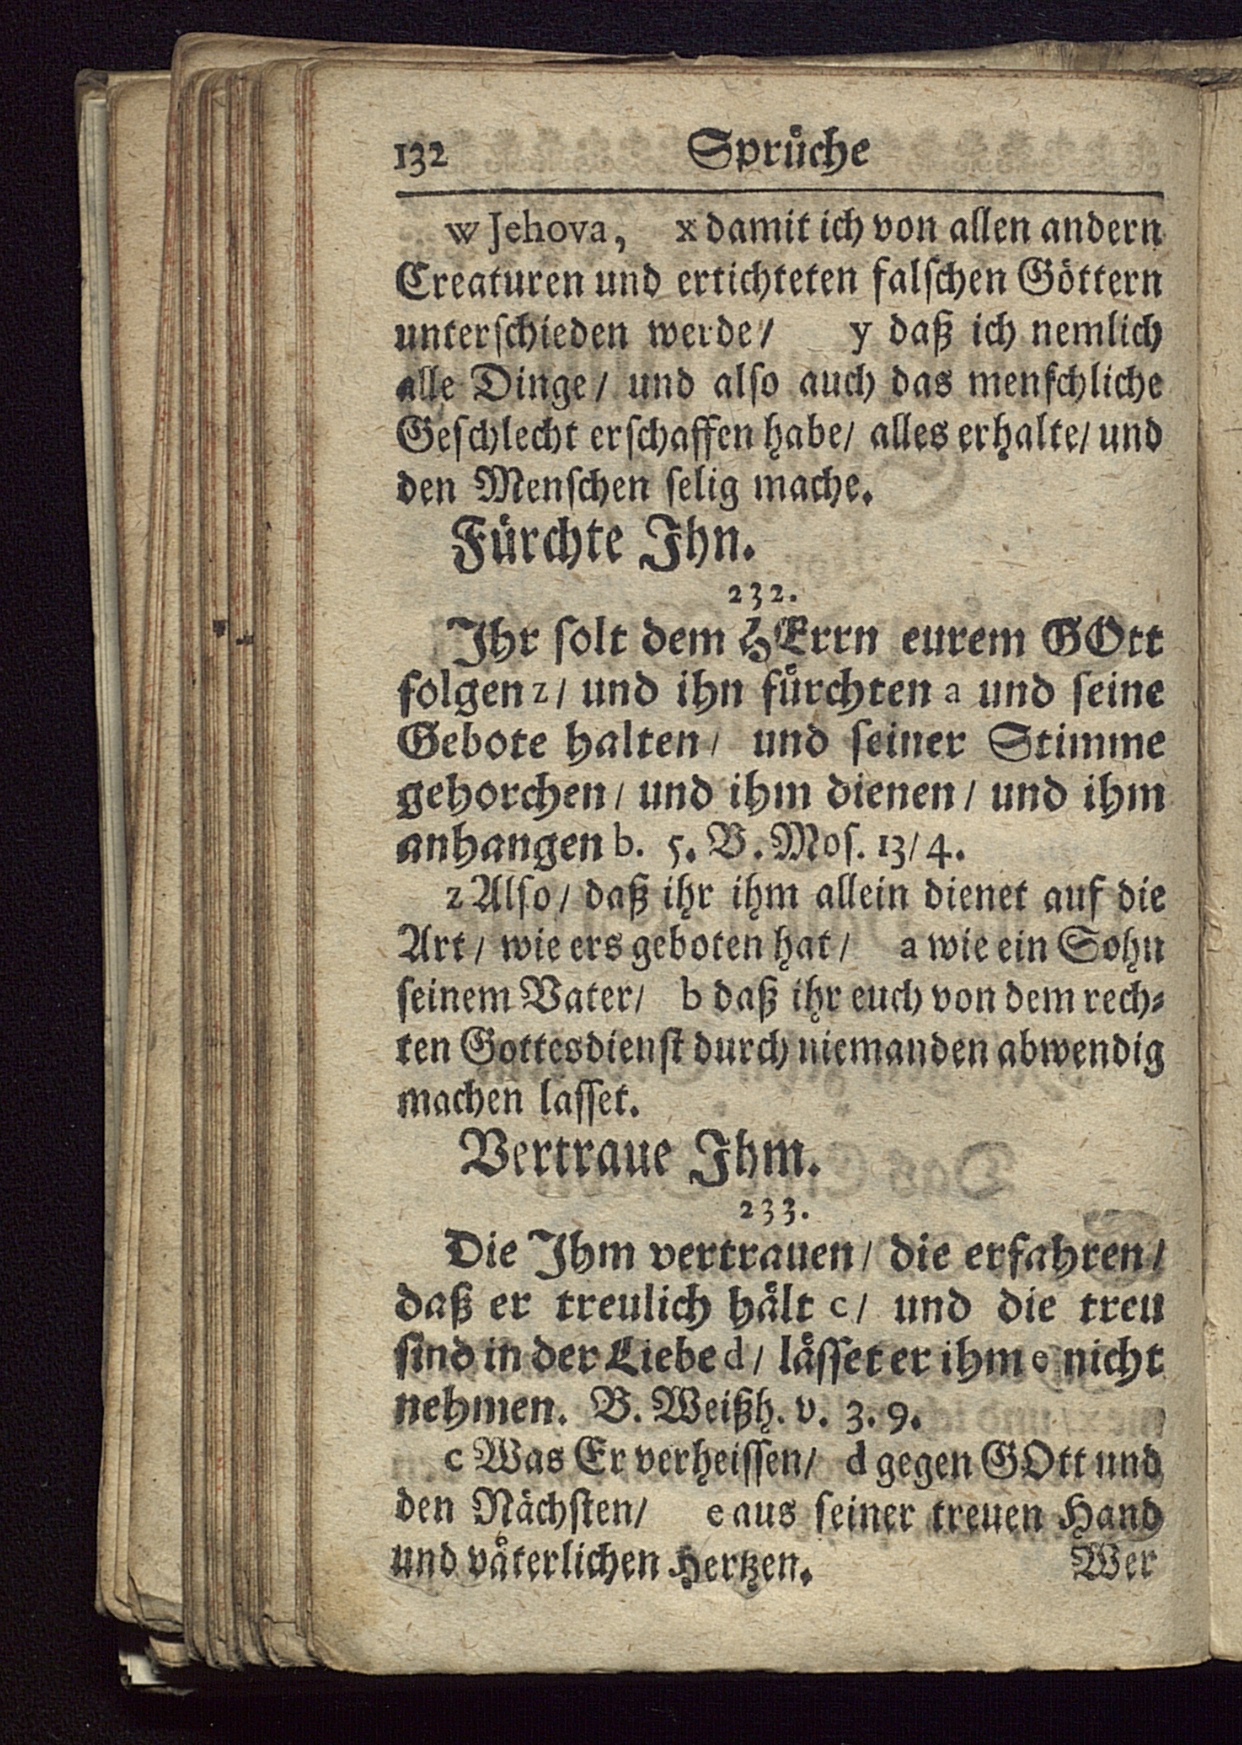 132 Sprüche
w Jehova, x damit ich von allen andern
Creaturen und ertichteten falschen Göttern
unterschieden werde/ y daß ich nemlich
alle Dinge/ und also auch das menschliche
Geschlecht erschaffen habe/ alles erhalte/ und
den Menschen selig mache.
Fürchte Ihn.
232.
Ihr solt dem HErrn eurem GOtt
folgen z/ und ihn fürchten a und seine
Gebote halten/ und seiner Stimme
gehorchen/ und ihm dienen/ und ihm
anhangen b. 5. B. Mos. 13/4.
z Also/ daß ihr ihm allein dienet auf die
Art/ wie ers geboten hat/ a wie ein Sohn
seinem Vater/ b daß ihr euch von dem rech-
ten Gottesdienst durch niemanden abwendig
machen lasset.
Vertraue Ihm.
233.
Die Ihm vertrauen/ die erfahren/
daß er treulich hält c/ und die treu
sind in der Liebe d/ lässet er ihm e nicht
nehmen. B. Weißh. v. 3. 9.
c Was Er verheissen/ d gegen GOtt und
den Nächsten/ e aus seiner treuen Hand
und väterlichen Hertzen. Wer